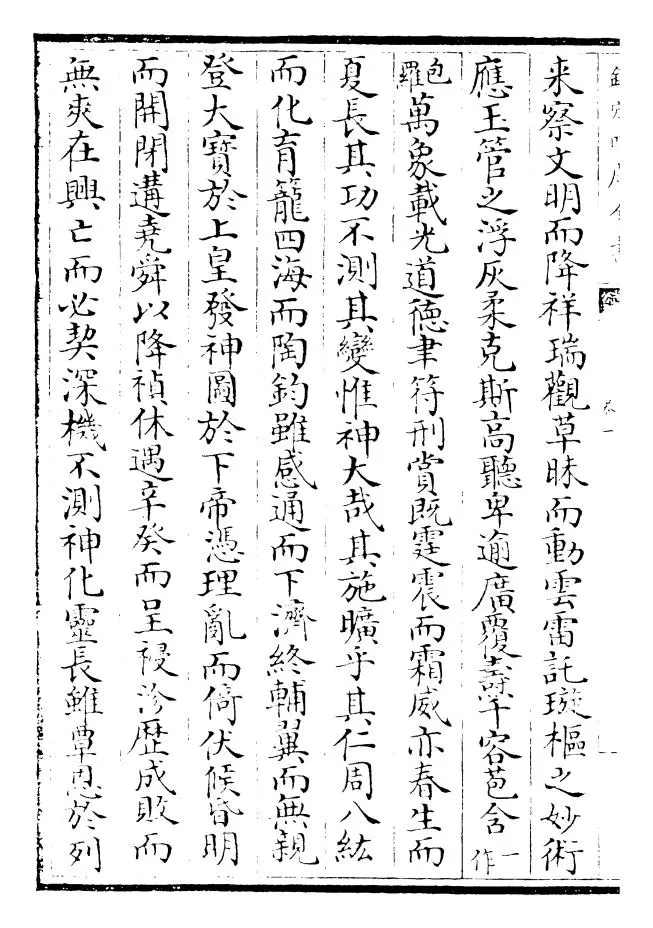 欽定四庫全書
卷一
来察文明而降祥瑞觀草昧而動雲雷託璇樞之妙術
應玉管之浮灰柔克斯高聽卑逾廣覆燾千容苞含一作
包羅萬象載光道德聿符刑賞既霆震而霜威亦春生而
夏長其功不測其變惟神大哉其施曠乎其仁周八紘
而化育籠四海而陶鈞雖感通而下濟終輔翼而無親
登大寶於上皇發神圖於下帝憑理亂而倚伏候昏明
而開閉遘堯舜以降禎休遇辛癸而呈祲沴歷成敗而
無爽在興亡而必契深機不測神化靈長雖覃恩於列